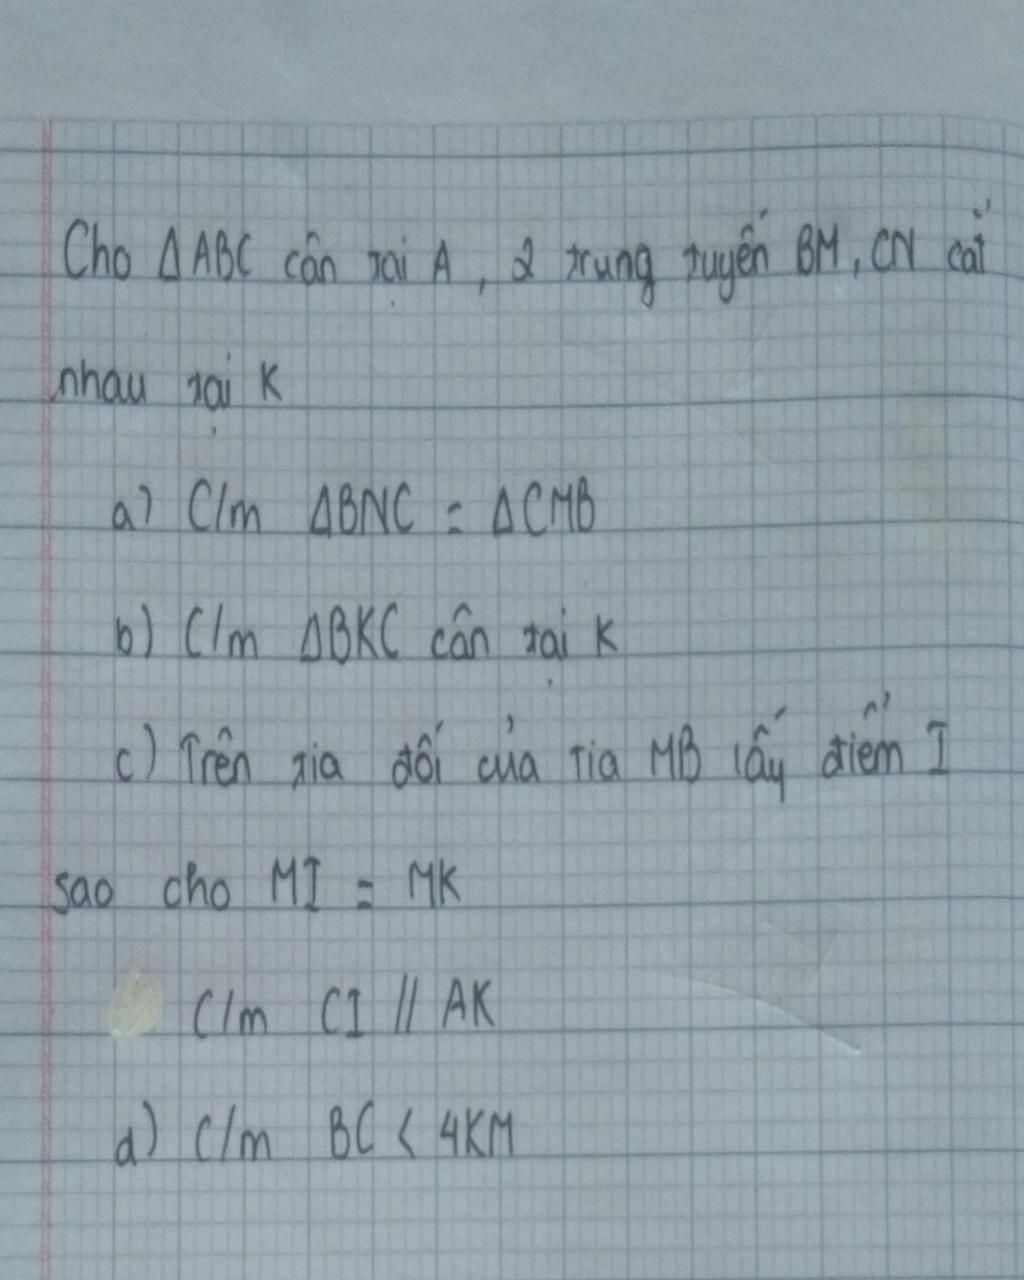 Cho ΔABC cân tại A, 2 trung tuyến BM, CN cắt
nhau tại K
a) C/m ΔBNC = ΔCMB
b) C/m ΔBKC cân tại K
c) Trên tia đối của tia MB lấy điểm I
sao cho MI = MK
C/m CI // AK
d) C/m BC < 4KM